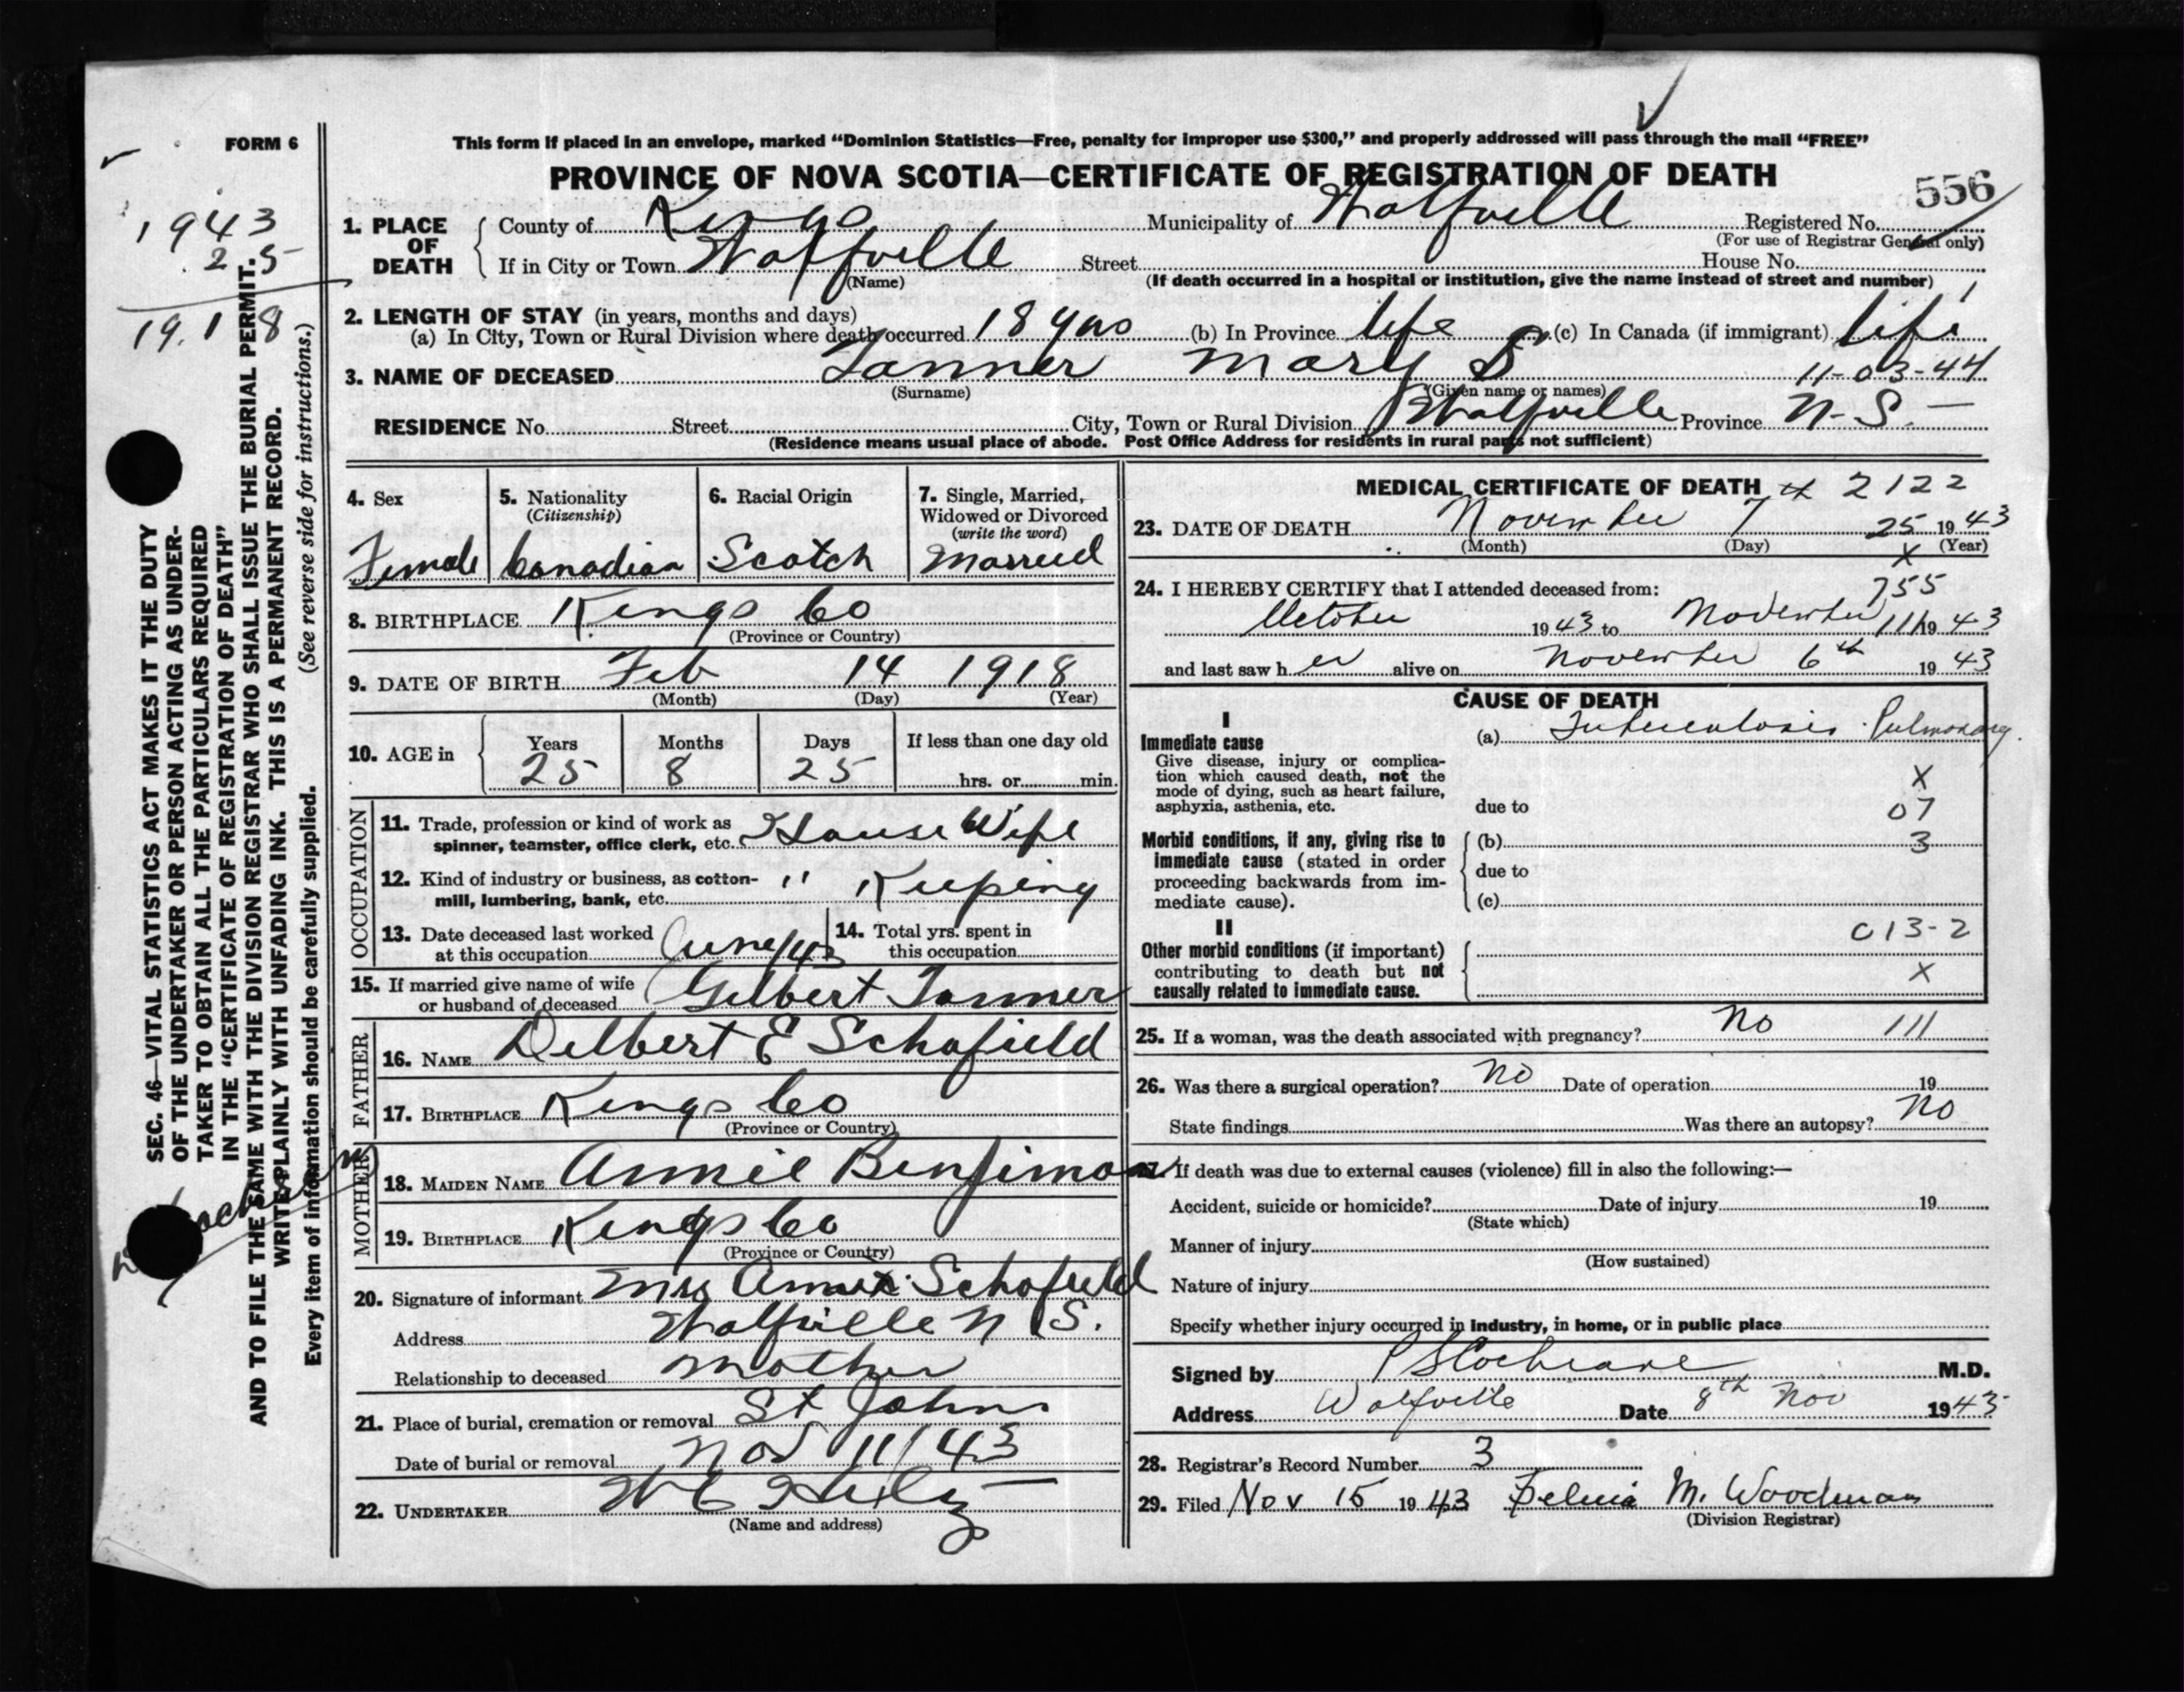 FORM 6
This form if placed in an envelope, marked "Dominion Statistics—Free, penalty for improper use $300," and properly addressed will pass through the mail "FREE"
PROVINCE OF NOVA SCOTIA—CERTIFICATE OF REGISTRATION OF DEATH
556
1943
25
19.1 8
1. PLACE OF DEATH County of Kings Municipality of Wolfville Registered No.
(For use of Registrar General only)
If in City or Town Wolfville Street House No.
(Name) (If death occurred in a hospital or institution, give the name instead of street and number)
2. LENGTH OF STAY (in years, months and days)
(a) In City, Town or Rural Division where death occurred 18 yrs (b) In Province life (c) In Canada (if immigrant) life
3. NAME OF DECEASED Tanner Mary S 11-03-44
(Surname) (Given name or names)
RESIDENCE No. Street City, Town or Rural Division Wolfville Province N.S.
(Residence means usual place of abode. Post Office Address for residents in rural parts not sufficient)
SEC. 46—VITAL STATISTICS ACT MAKES IT THE DUTY
OF THE UNDERTAKER OR PERSON ACTING AS UNDER-
TAKER TO OBTAIN ALL THE PARTICULARS REQUIRED
IN THE "CERTIFICATE OF REGISTRATION OF DEATH"
AND TO FILE THE SAME WITH THE DIVISION REGISTRAR WHO SHALL ISSUE THE BURIAL PERMIT.
WRITE PLAINLY WITH UNFADING INK. THIS IS A PERMANENT RECORD.
Every item of information should be carefully supplied. (See reverse side for instructions.)
4. Sex
Female
5. Nationality
(Citizenship)
Canadian
6. Racial Origin
Scotch
7. Single, Married,
Widowed or Divorced
(write the word)
Married
8. BIRTHPLACE Kings Co
(Province or Country)
9. DATE OF BIRTH Feb 14 1918
(Month) (Day) (Year)
10. AGE in Years Months Days If less than one day old
25 8 25 hrs. or min.
OCCUPATION
11. Trade, profession or kind of work as
spinner, teamster, office clerk, etc. House Wife
12. Kind of industry or business, as cotton-
mill, lumbering, bank, etc. " Keeping
13. Date deceased last worked
at this occupation June/43
14. Total yrs. spent in
this occupation
15. If married give name of wife
or husband of deceased Gilbert Tanner
FATHER
16. NAME Delbert E Schofield
17. BIRTHPLACE Kings Co
(Province or Country)
MOTHER
18. MAIDEN NAME Annie Benjiman
19. BIRTHPLACE Kings Co
(Province or Country)
20. Signature of informant Mrs Annie Schofield
Address Wolfville N S.
Relationship to deceased Mother
21. Place of burial, cremation or removal St Johns
Date of burial or removal Nov 11/43
22. UNDERTAKER
(Name and address)
MEDICAL CERTIFICATE OF DEATH 2122
23. DATE OF DEATH November 7 25 1943
(Month) (Day) x (Year)
24. I HEREBY CERTIFY that I attended deceased from: 755
October 1943 to November 111 1943
and last saw her alive on November 6th 1943
CAUSE OF DEATH
I
Immediate cause
Give disease, injury or complica-
tion which caused death, not the
mode of dying, such as heart failure,
asphyxia, asthenia, etc.
(a) Tuberculosis Pulmonary.
X
due to 07
Morbid conditions, if any, giving rise to
immediate cause (stated in order
proceeding backwards from im-
mediate cause).
(b) 3
due to
(c)
II
Other morbid conditions (if important)
contributing to death but not
causally related to immediate cause.
013-2
X
25. If a woman, was the death associated with pregnancy? No 111
26. Was there a surgical operation? No Date of operation 19
State findings Was there an autopsy? No
27. If death was due to external causes (violence) fill in also the following:—
Accident, suicide or homicide? Date of injury 19
(State which)
Manner of injury
(How sustained)
Nature of injury
Specify whether injury occurred in Industry, in home, or in public place
Signed by P S Cochrane M.D.
Address Wolfville Date 8th Nov 1943
28. Registrar's Record Number 3
29. Filed Nov 15 1943 M. Woodman
(Division Registrar)